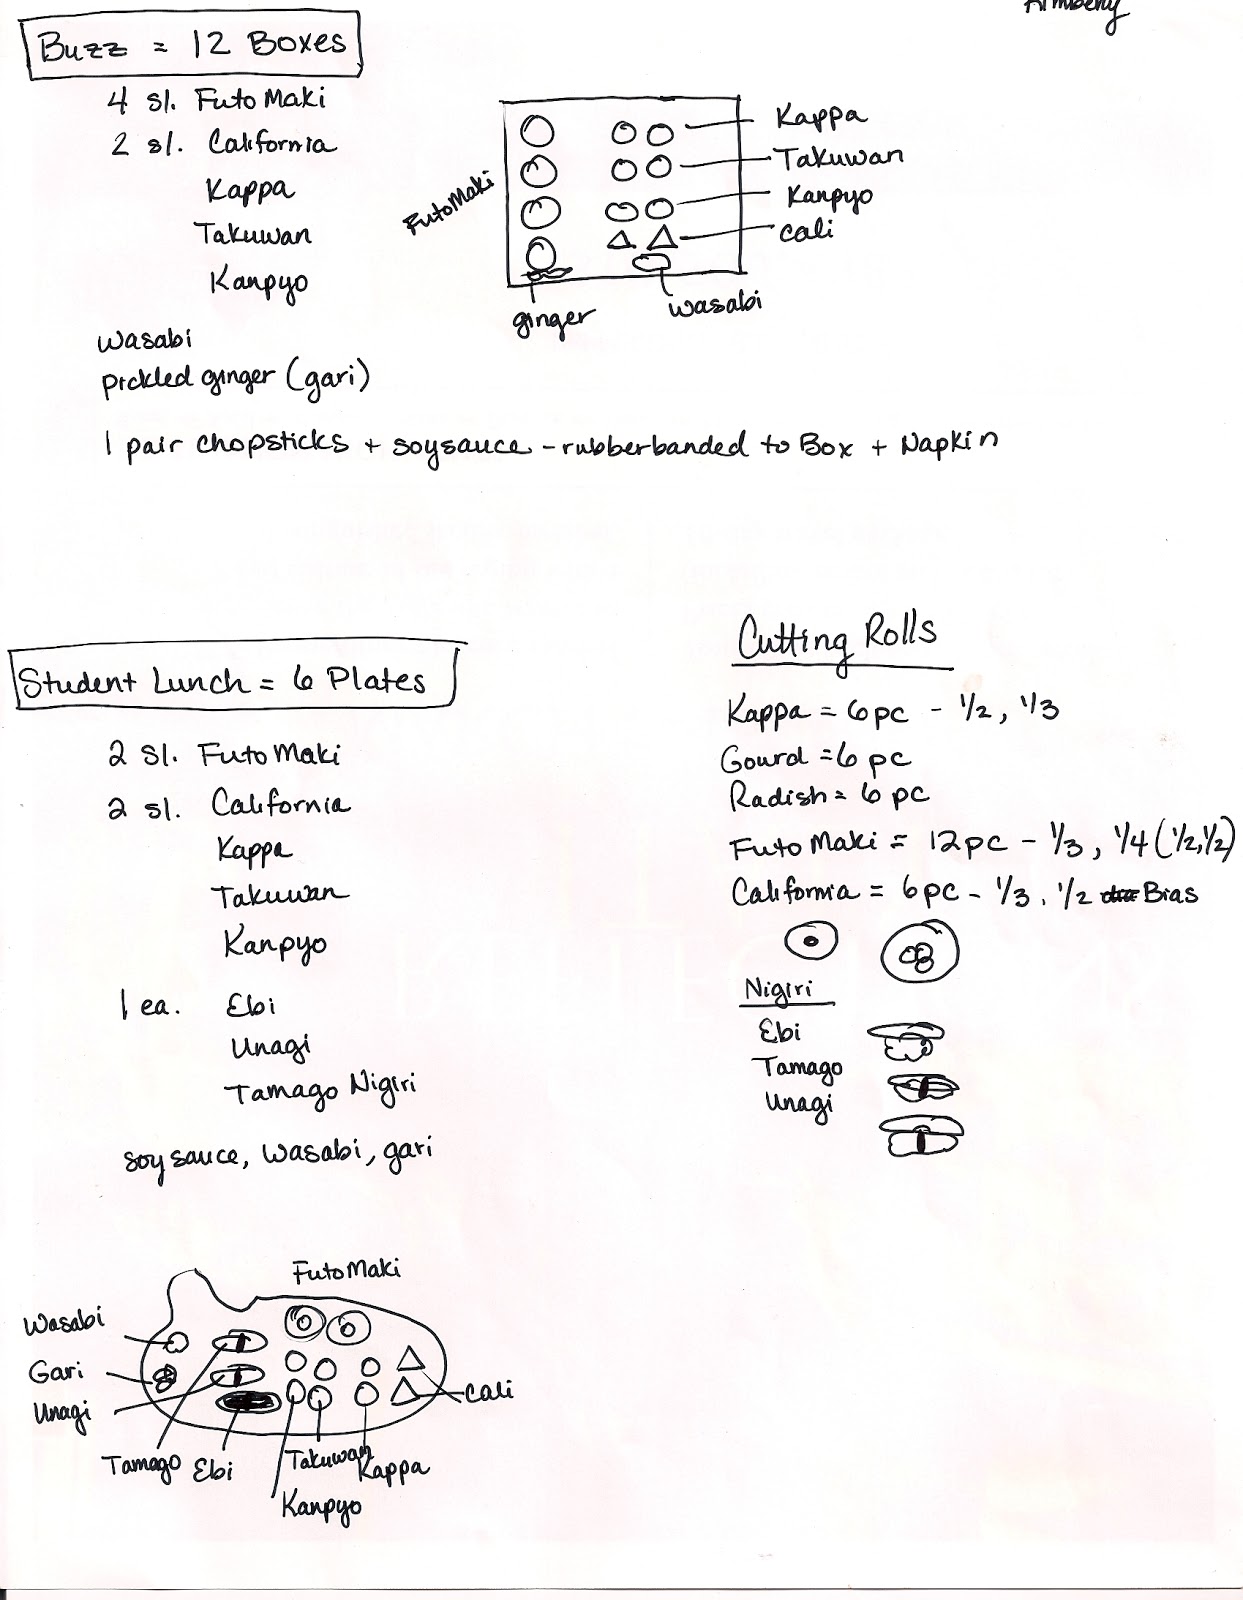 Kimberly
Buzz = 12 Boxes
4 sl. Futo Maki
2 sl. California
Kappa
Takuwan
Kanpyo
wasabi
pickled ginger (gari)
1 pair chopsticks + soysauce - rubberbanded to Box + Napkin
Futo Maki
Kappa
Takuwan
Kanpyo
Cali
ginger
wasabi
Student Lunch = 6 Plates
2 sl. Futo Maki
2 sl. California
Kappa
Takuwan
Kanpyo
1 ea. Ebi
Unagi
Tamago Nigiri
soy sauce, wasabi, gari
Cutting Rolls
Kappa = 6 pc - 1/2, 1/3
Gourd = 6 pc
Radish = 6 pc
Futo Maki = 12 pc - 1/3, 1/4 (1/2, 1/2)
California = 6 pc - 1/3, 1/2 Bias
Nigiri
Ebi
Tamago
Unagi
Futo Maki
Wasabi
Gari
Unagi
Tamago
Ebi
Takuwan
Kanpyo
Kappa
Cali